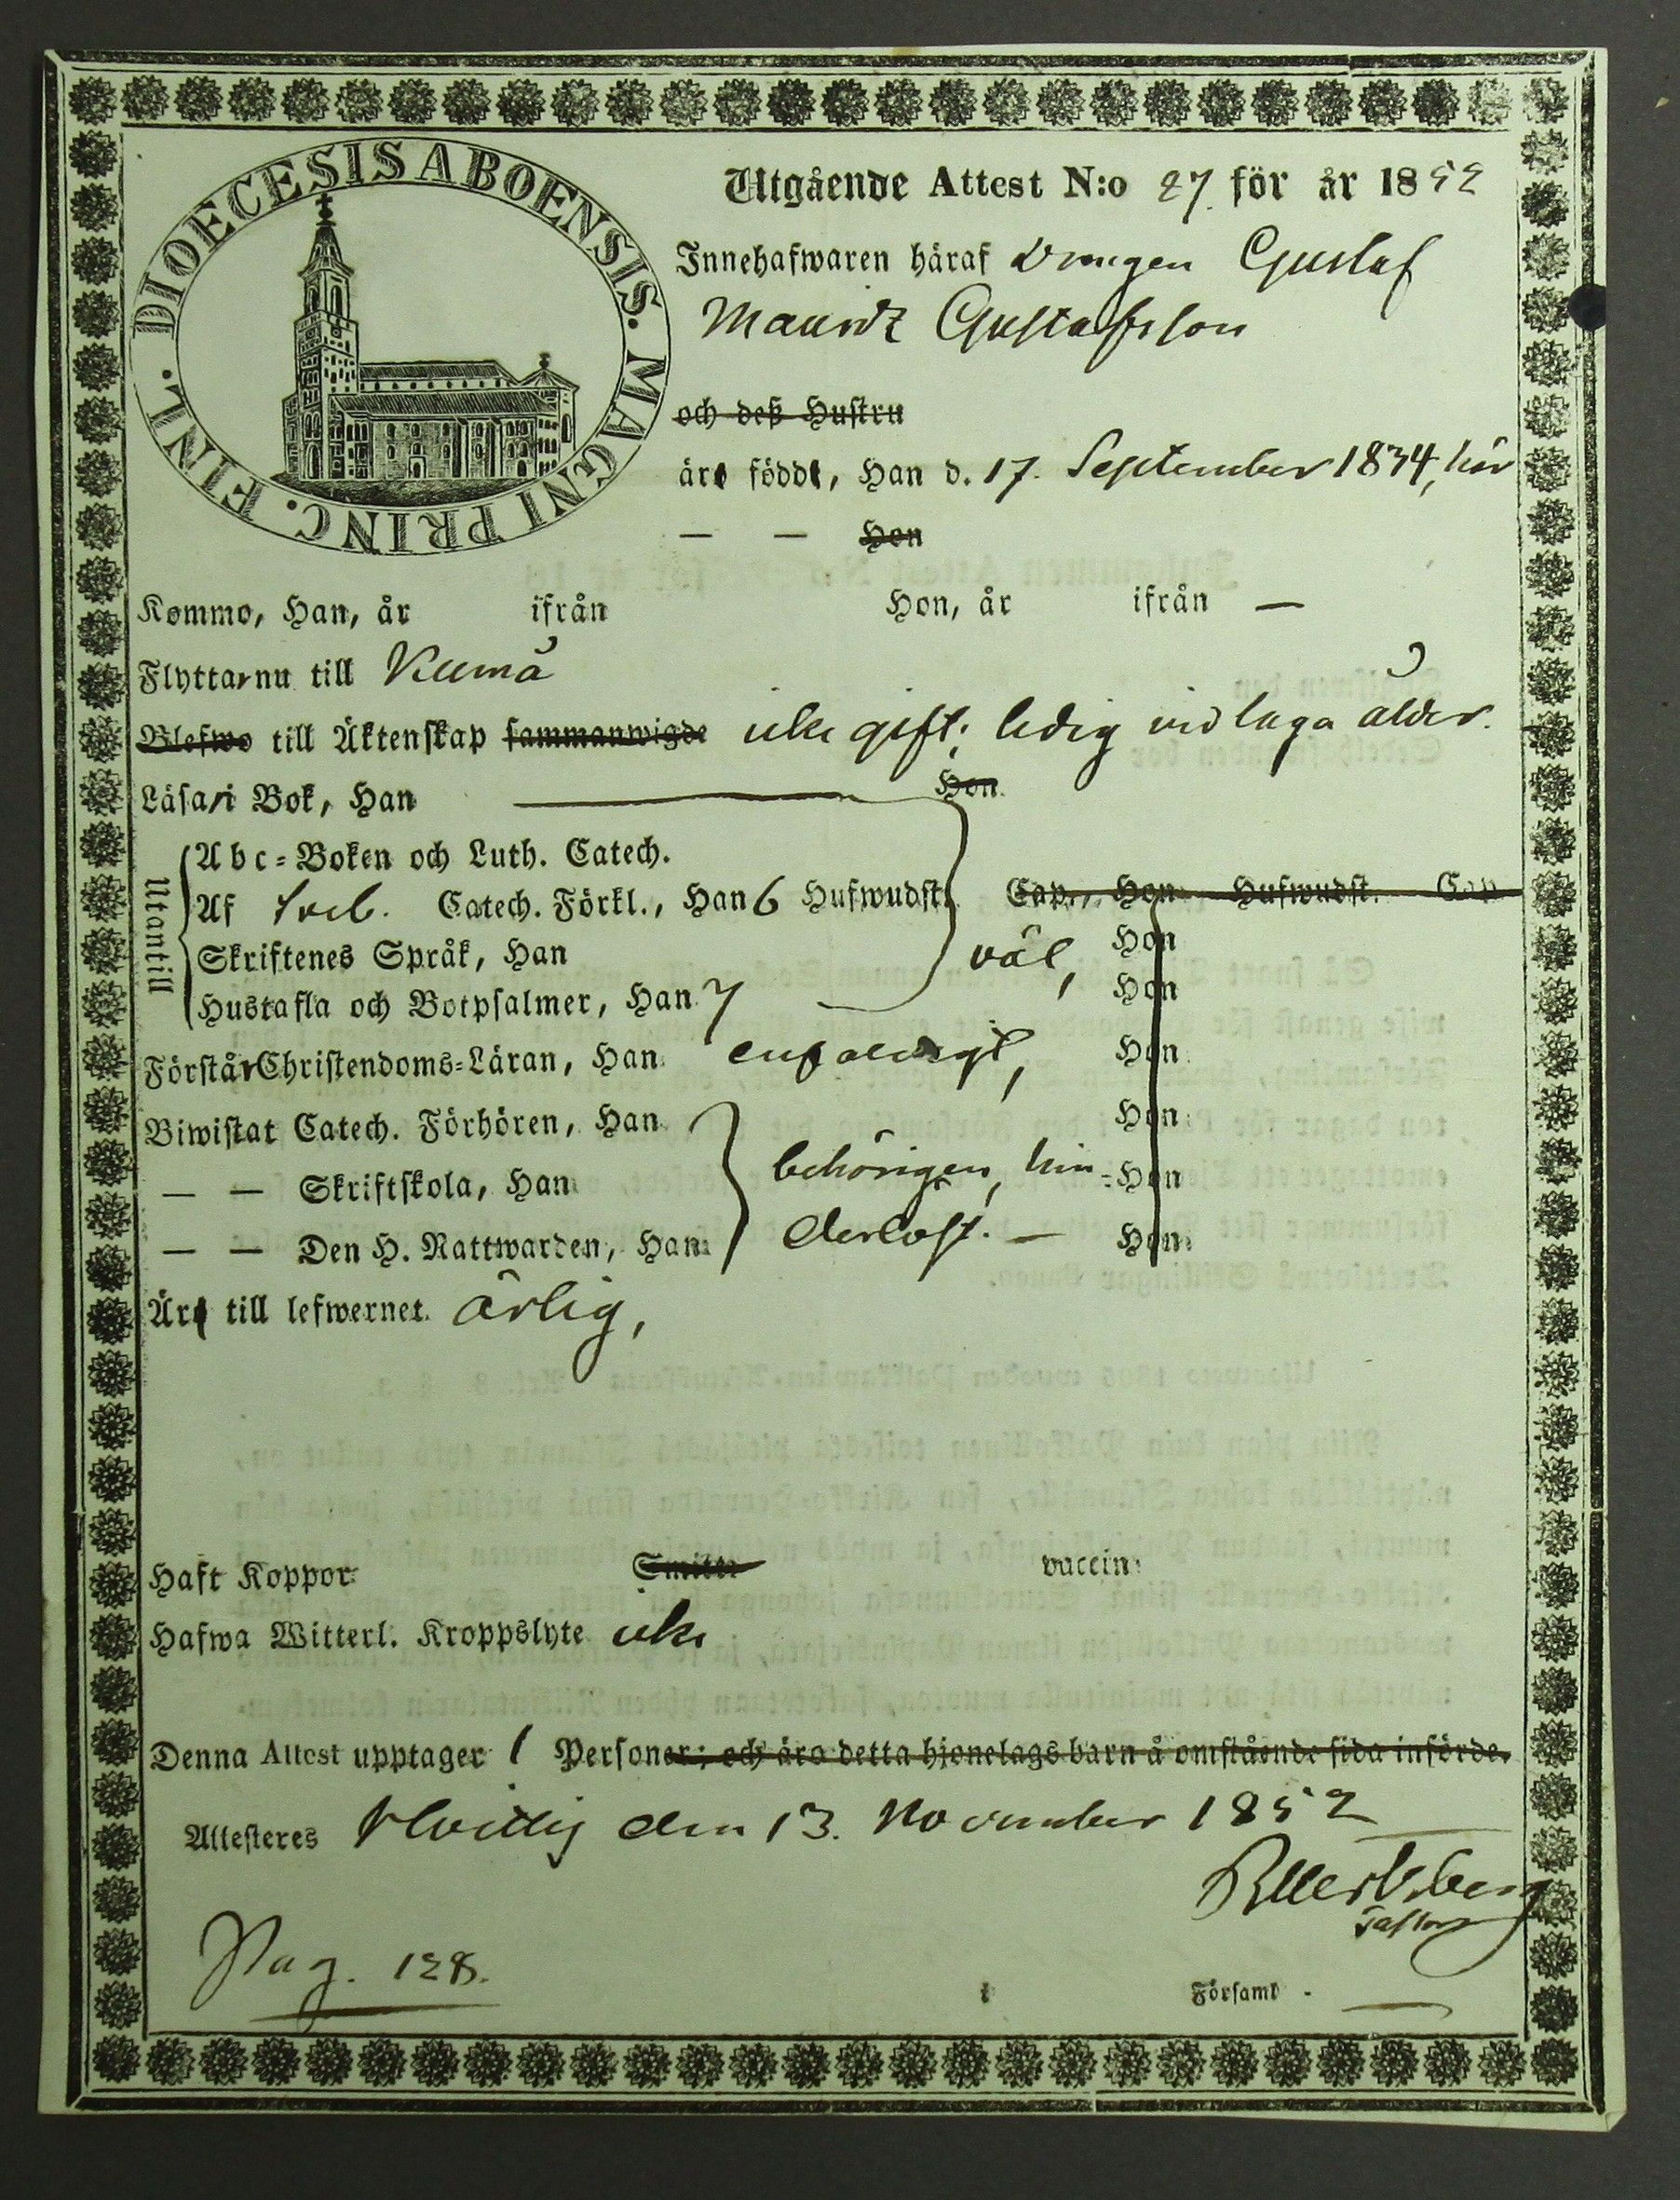 DIOECESIS ABOENSIS. MAGNI PRINC. FINL.
Utgående Attest N:o 27. för år 1852
Innehafwaren häraf drengen Gustaf
Mauritz Gustafsson
och deß Hustru
äro födde, Han d. 17. September 1834, här
— — Hon
Kommo, Han, år ifrån Hon, år ifrån —
Flyttar nu till Kumå
Blefwo till Äktenskap sammanwigde icke gift; ledig vid laga ålder.
Läsa i Bok, Han Hon
Utantill
Abc=Boken och Luth. Catech.
Af Sveb. Catech. Förkl., Han 6 Hufwudst. Cap., Hon Hufwudst. Cap
Skriftenes Språk, Han väl, Hon
Hustafla och Botpsalmer, Han 7 Hon
Förstår Christendoms=Läran, Han enfaldigt, Hon
Biwistat Catech. Förhören, Han Hon
— — Skriftskola, Han behörigen, hin- Hon
— — Den H. Nattwarden, Han derlöst. — Hon
Äro till lefwernet ärlig,
Haft Koppor Smitta vaccin
Hafwa Witterl. Kroppslyte icke
Denna Attest upptager 1 Personer; och äro detta hjonelags barn å omstående sida införde.
Attesteres Hvittis den 13. November 1852
Pastor
Pag. 128.
i Församl -